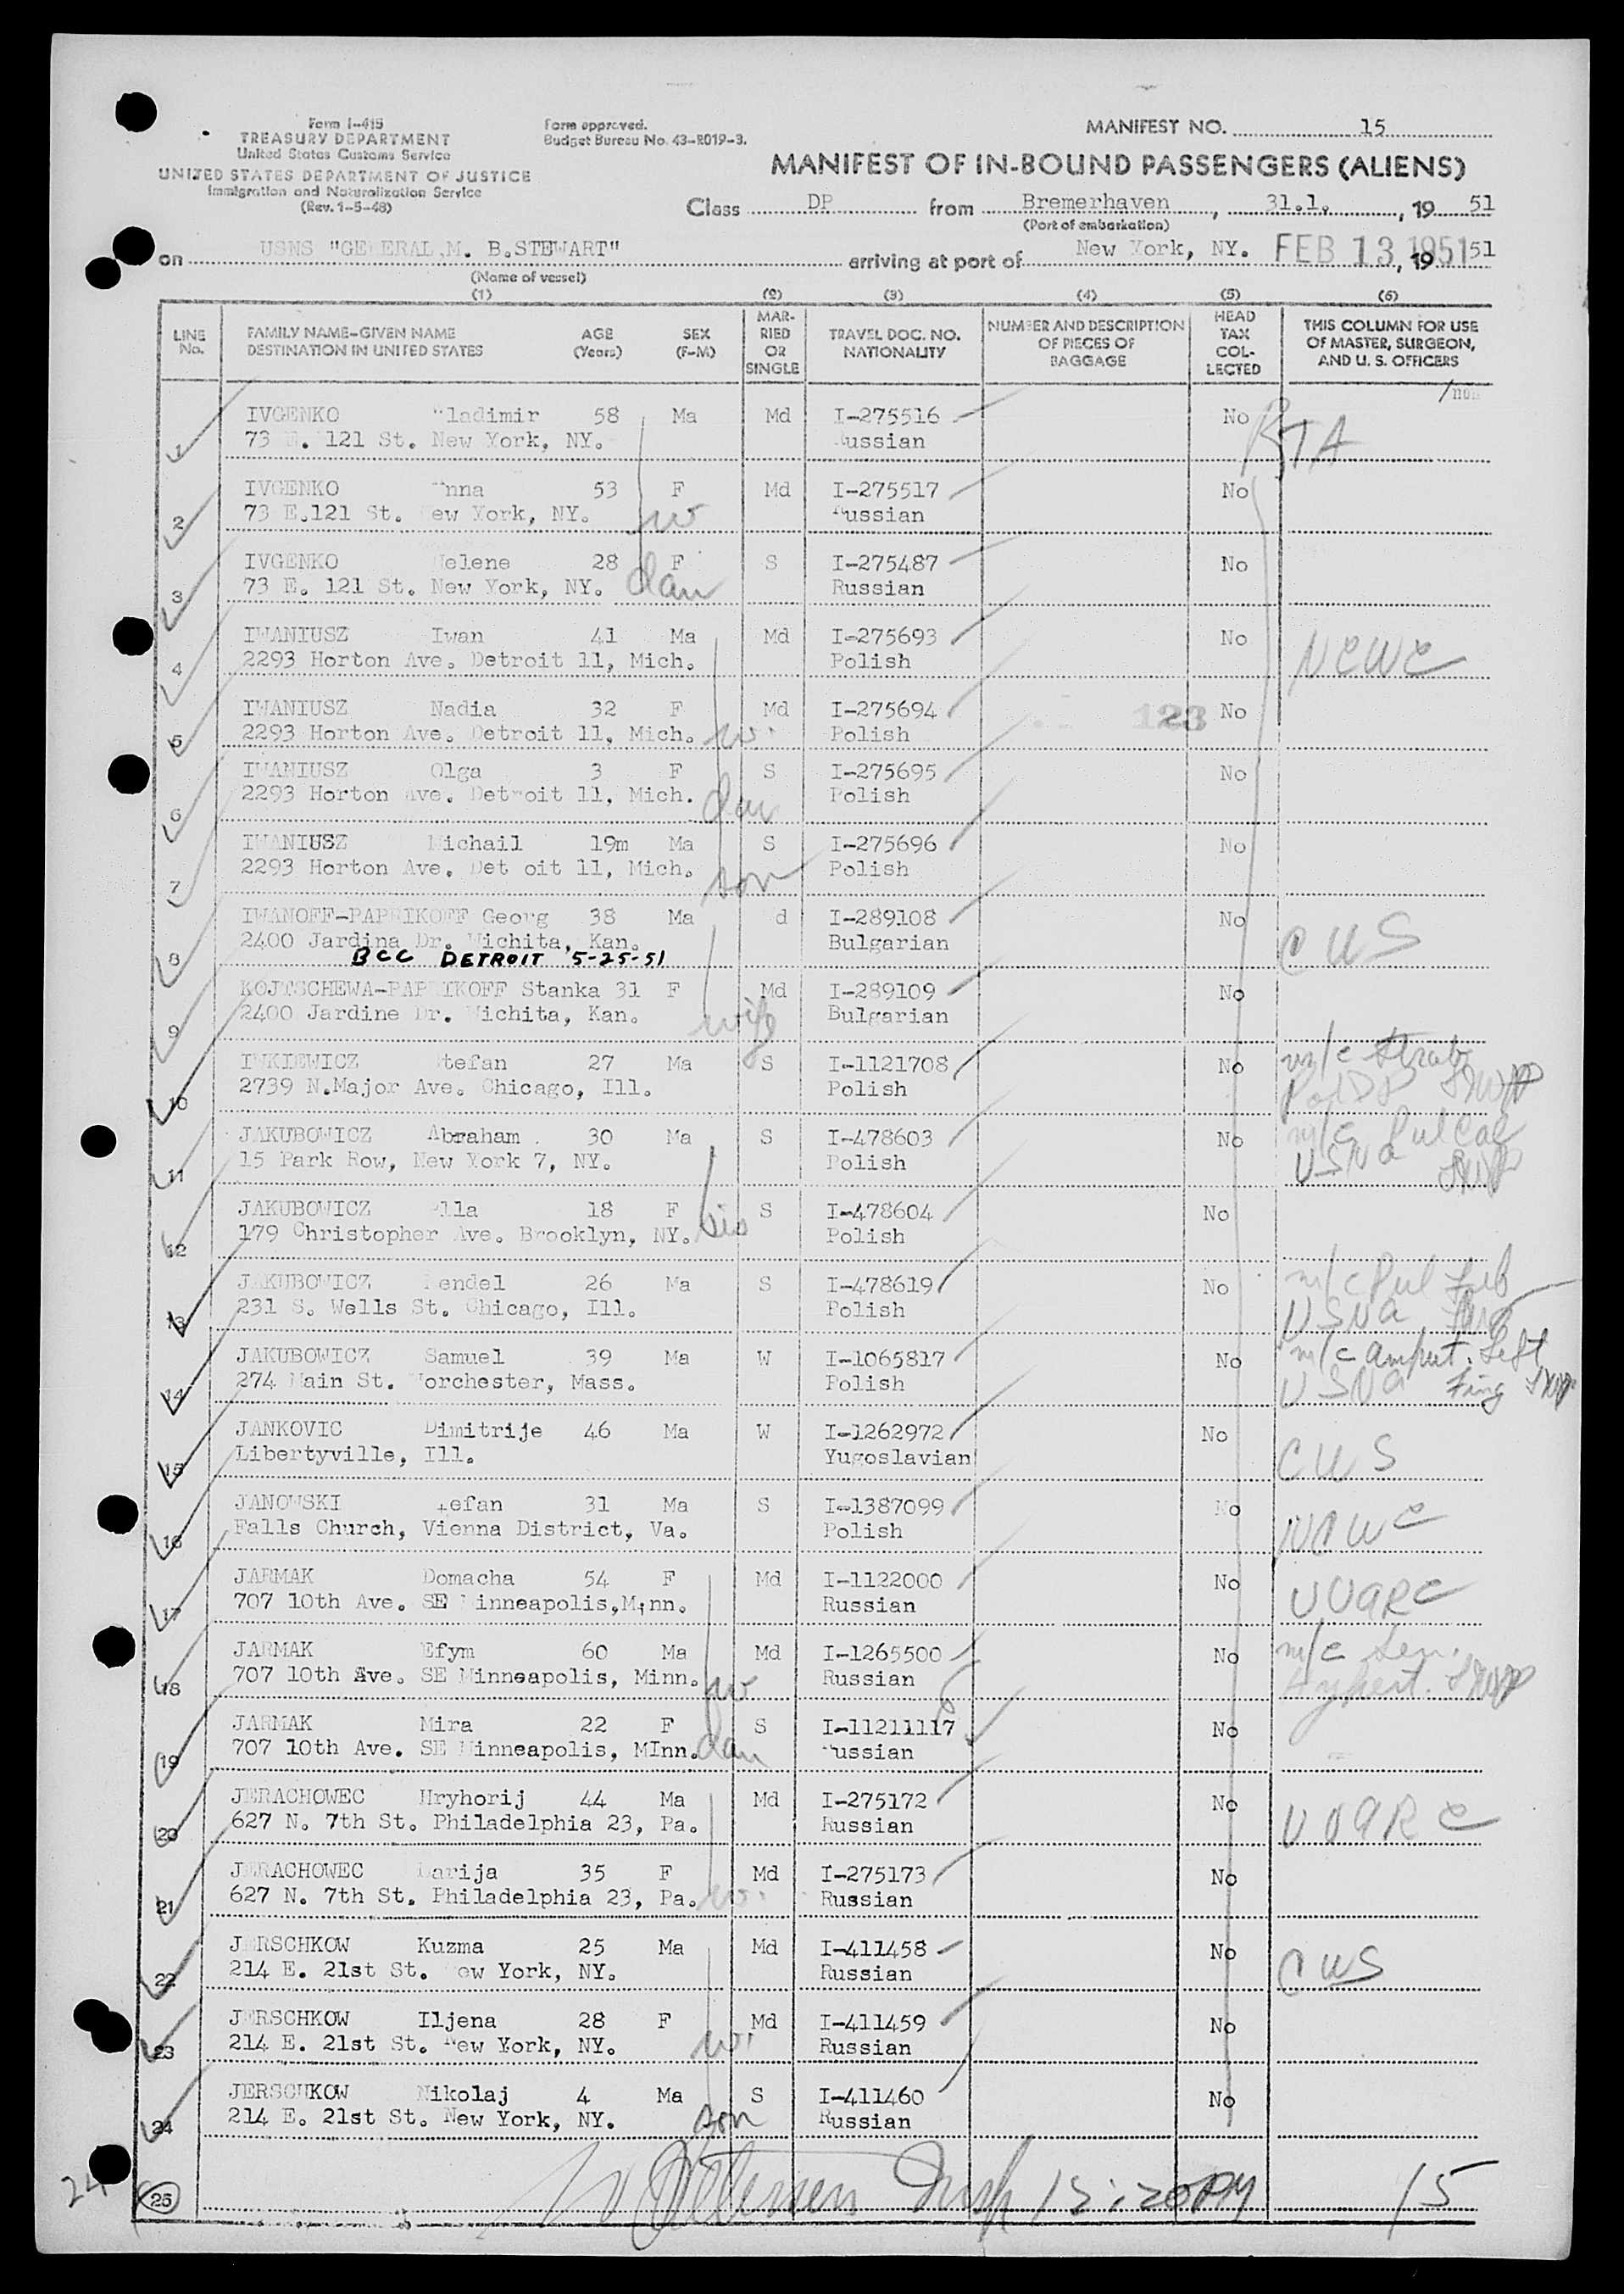 Form I-415
TREASURY DEPARTMENT
United States Customs Service
UNITED STATES DEPARTMENT OF JUSTICE
Immigration and Naturalization Service
(Rev. 1-5-48)
Form approved.
Budget Bureau No. 43-R019-3.
MANIFEST NO. 15
MANIFEST OF IN-BOUND PASSENGERS (ALIENS)
Class DP from Bremerhaven, 31.1., 19 51
(Port of embarkation)
on USNS "GENERAL M. B.STEWART" arriving at port of New York, NY. FEB 13 1951, 19 51
(Name of vessel)
(1) (2) (3) (4) (5) (6)
LINE No. FAMILY NAME-GIVEN NAME DESTINATION IN UNITED STATES AGE (Years) SEX (F-M) MARRIED OR SINGLE TRAVEL DOC. NO. NATIONALITY NUMBER AND DESCRIPTION OF PIECES OF BAGGAGE HEAD TAX COLLECTED THIS COLUMN FOR USE OF MASTER, SURGEON, AND U. S. OFFICERS
1 IVGENKO Wladimir 58 Ma Md I-275516 No RTA
73 E. 121 St. New York, NY. Russian
2 IVGENKO Anna 53 F Md I-275517 No
73 E.121 St. New York, NY. w Russian
3 IVGENKO Helene 28 F S I-275487 No
73 E. 121 St. New York, NY. dau Russian
4 IWANIUSZ Iwan 41 Ma Md I-275693 No NCWC
2293 Horton Ave. Detroit 11, Mich. Polish
5 IWANIUSZ Nadia 32 F Md I-275694 123 No
2293 Horton Ave. Detroit 11, Mich. w. Polish
6 IWANIUSZ Olga 3 F S I-275695 No
2293 Horton Ave. Detroit 11, Mich. dau Polish
7 IWANIUSZ Michail 19m Ma S I-275696 No
2293 Horton Ave. Det oit 11, Mich. son Polish
8 IWANOFF-PAPRIKOFF Georg 38 Ma d I-289108 No CWS
2400 Jardina Dr. Wichita, Kan. Bulgarian
BCC DETROIT 5-25-51
9 KOJTSCHEWA-PAPRIKOFF Stanka 31 F Md I-289109 No
2400 Jardine Dr. Wichita, Kan. wife Bulgarian
10 IWKIEWICZ Stefan 27 Ma S I-1121708 No m/c Strab
2739 N.Major Ave. Chicago, Ill. Polish
11 JAKUBOWICZ Abraham 30 Ma S I-478603 No m/c Pul Cal
15 Park Row, New York 7, NY. Polish USNA
12 JAKUBOWICZ Ella 18 F S I-478604 No
179 Christopher Ave. Brooklyn, NY. sis Polish
13 JAKUBOWICZ Mendel 26 Ma S I-478619 No m/c Pul
231 S. Wells St. Chicago, Ill. Polish USNA
14 JAKUBOWICZ Samuel 39 Ma W I-1065817 No m/c amput. Left
274 Main St. Worchester, Mass. Polish USNA Fing
15 JANKOVIC Dimitrije 46 Ma W I-1262972 No CWS
Libertyville, Ill. Yugoslavian
16 JANOWSKI Stefan 31 Ma S I-1387099 No NCWC
Falls Church, Vienna District, Va. Polish
17 JARMAK Domacha 54 F Md I-1122000 No UUARC
707 10th Ave. SE Minneapolis,Minn. Russian
18 JARMAK Efym 60 Ma Md I-1265500 No m/c Sen.
707 10th Ave. SE Minneapolis, Minn. w Russian
19 JARMAK Mira 22 F S I-11211117 No
707 10th Ave. SE Minneapolis, MInn. dau Russian
20 JERACHOWEC Hryhorij 44 Ma Md I-275172 No UUARC
627 N. 7th St. Philadelphia 23, Pa. Russian
21 JERACHOWEC Darija 35 F Md I-275173 No
627 N. 7th St. Philadelphia 23, Pa. w. Russian
22 JERSCHKOW Kuzma 25 Ma Md I-411458 No CWS
214 E. 21st St. New York, NY. Russian
23 JERSCHKOW Iljena 28 F Md I-411459 No
214 E. 21st St. New York, NY. w. Russian
24 JERSCHKOW Nikolaj 4 Ma S I-411460 No
214 E. 21st St. New York, NY. son Russian
24 25 Insp 12:20PM 15